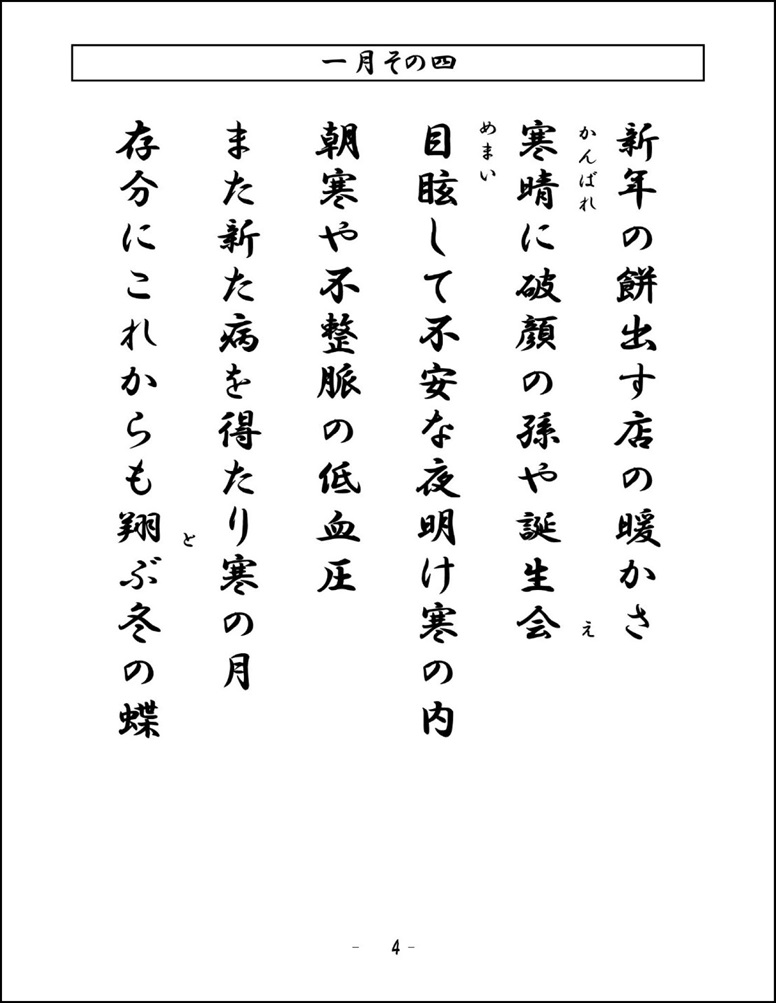 一月その四
新年の餅出す店の暖かさ
かんばれ
寒晴に破顔の孫や誕生会
え
めまい
目眩して不安な夜明け寒の内
朝寒や不整脈の低血圧
また新た病を得たり寒の月
と
存分にこれからも翔ぶ冬の蝶
- 4 -